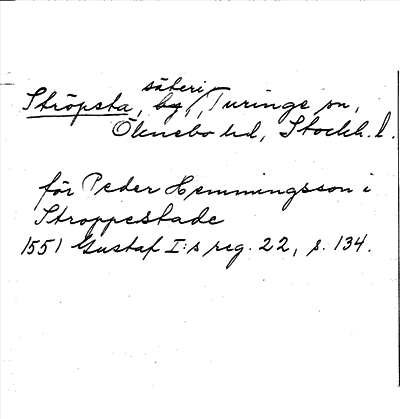 säteri
Ströpsta, by, Turinge sn,
Öknebo hd, Stockh. l.
för Peder Hemmingsson i
Stroppestade
1551 Gustaf I:s reg. 22, s. 134.